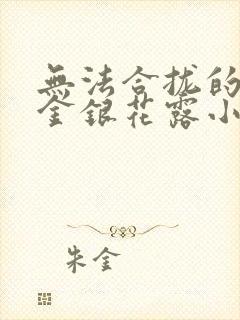 無法合拢的
金銀花露小
朱金